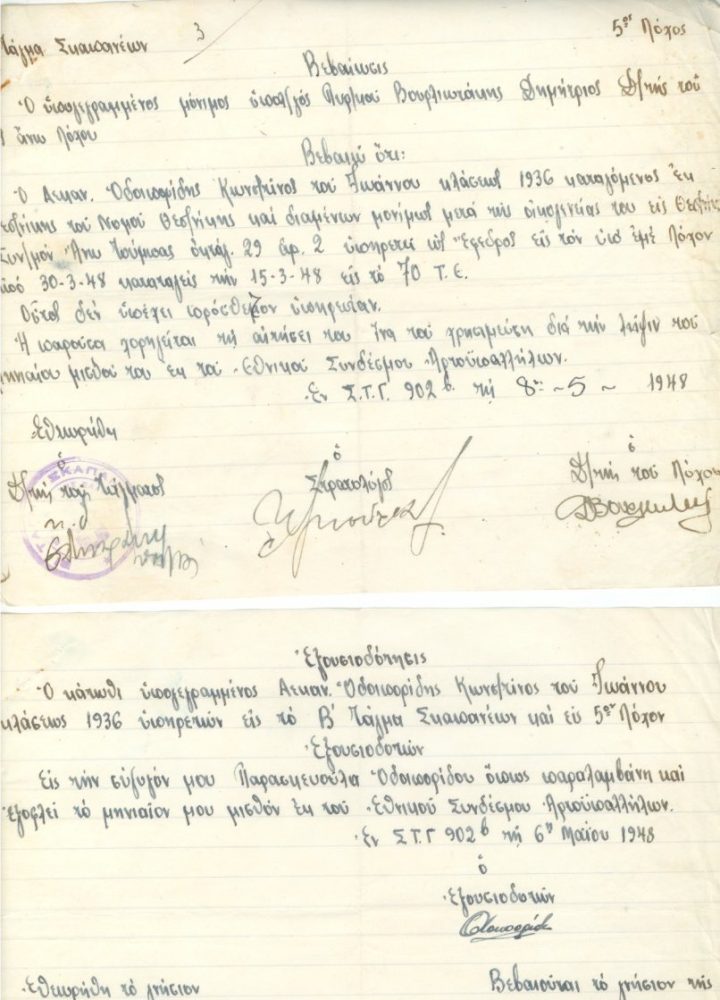 Τάγμα Σκαπανέων 3 5ος Λόχος
Βεβαίωσις
Ο ὑπογεγραμμένος μόνιμος ὑπολ/γός Πυρ/κοῦ Βουρλιωτάκης Δημήτριος Δ/τής τοῦ
ἄνω Λόχου
Βεβαιῶ ὅτι:
Ὁ Δεκαν. Ὁδοιπορίδης Κων/τῖνος τοῦ Ἰωάννου κλάσεως 1936 καταγόμενος ἐκ
Θεσ/νίκης τοῦ Νομοῦ Θεσ/νίκης καί διαμένων μονίμως μετά τῆς οἰκογενείας του εἰς Θεσ/νίκη
Συν/σμόν Ἄνω Τούμπας ὀκταγ. 29 ἀρ. 2 ὑπηρετεῖ ὡς Ἔφεδρος εἰς τόν ὑπ' ἐμέ Λόχον
ἀπό 30-3-48 καταταγείς τήν 15-3-48 εἰς τό 70 Τ.Ε.
Οὗτος δέν ὑπέχει πρόσθετον ὑπηρεσίαν.
Ἡ παροῦσα χορηγεῖται τῇ αἰτήσει του ἵνα τοῦ χρησιμεύσῃ διά τήν λῆψιν τοῦ
μηνιαίου μισθοῦ του ἐκ τοῦ Ἐθνικοῦ Συνδέσμου Ἀρτοϋπαλλήλων.
Ἐν Σ.Τ.Γ. 902 β τῇ 8η - 5 - 1948
Ἐθεωρήθη
ὁ ὁ ὁ
Δ/τής τοῦ Τάγματος Στρατολόγος Δ/τής τοῦ Λόχου
ΣΚΑΠΑ
Ἐξουσιοδότησις
Ὁ κάτωθι ὑπογεγραμμένος Δεκαν. Ὁδοιπορίδης Κων/τῖνος τοῦ Ἰωάννου
κλάσεως 1936 ὑπηρετῶν εἰς τό Β' Τάγμα Σκαπανέων καί εἰς 5ον Λόχον
Ἐξουσιοδοτῶν
Εἰς τήν σύζυγόν μου Παρασκευούλα Ὁδοιπορίδου ὅπως παραλαμβάνη καί
ἐξοφλεῖ τό μηνιαῖον μου μισθόν ἐκ τοῦ Ἐθνικοῦ Συνδέσμου Ἀρτοϋπαλλήλων.
Ἐν Σ.Τ.Γ 902 β τῇ 6η Μαΐου 1948
ὁ
Ἐξουσιοδοτῶν
Ἐθεωρήθη τό γνήσιον Βεβαιοῦται τό γνήσιον τῆς